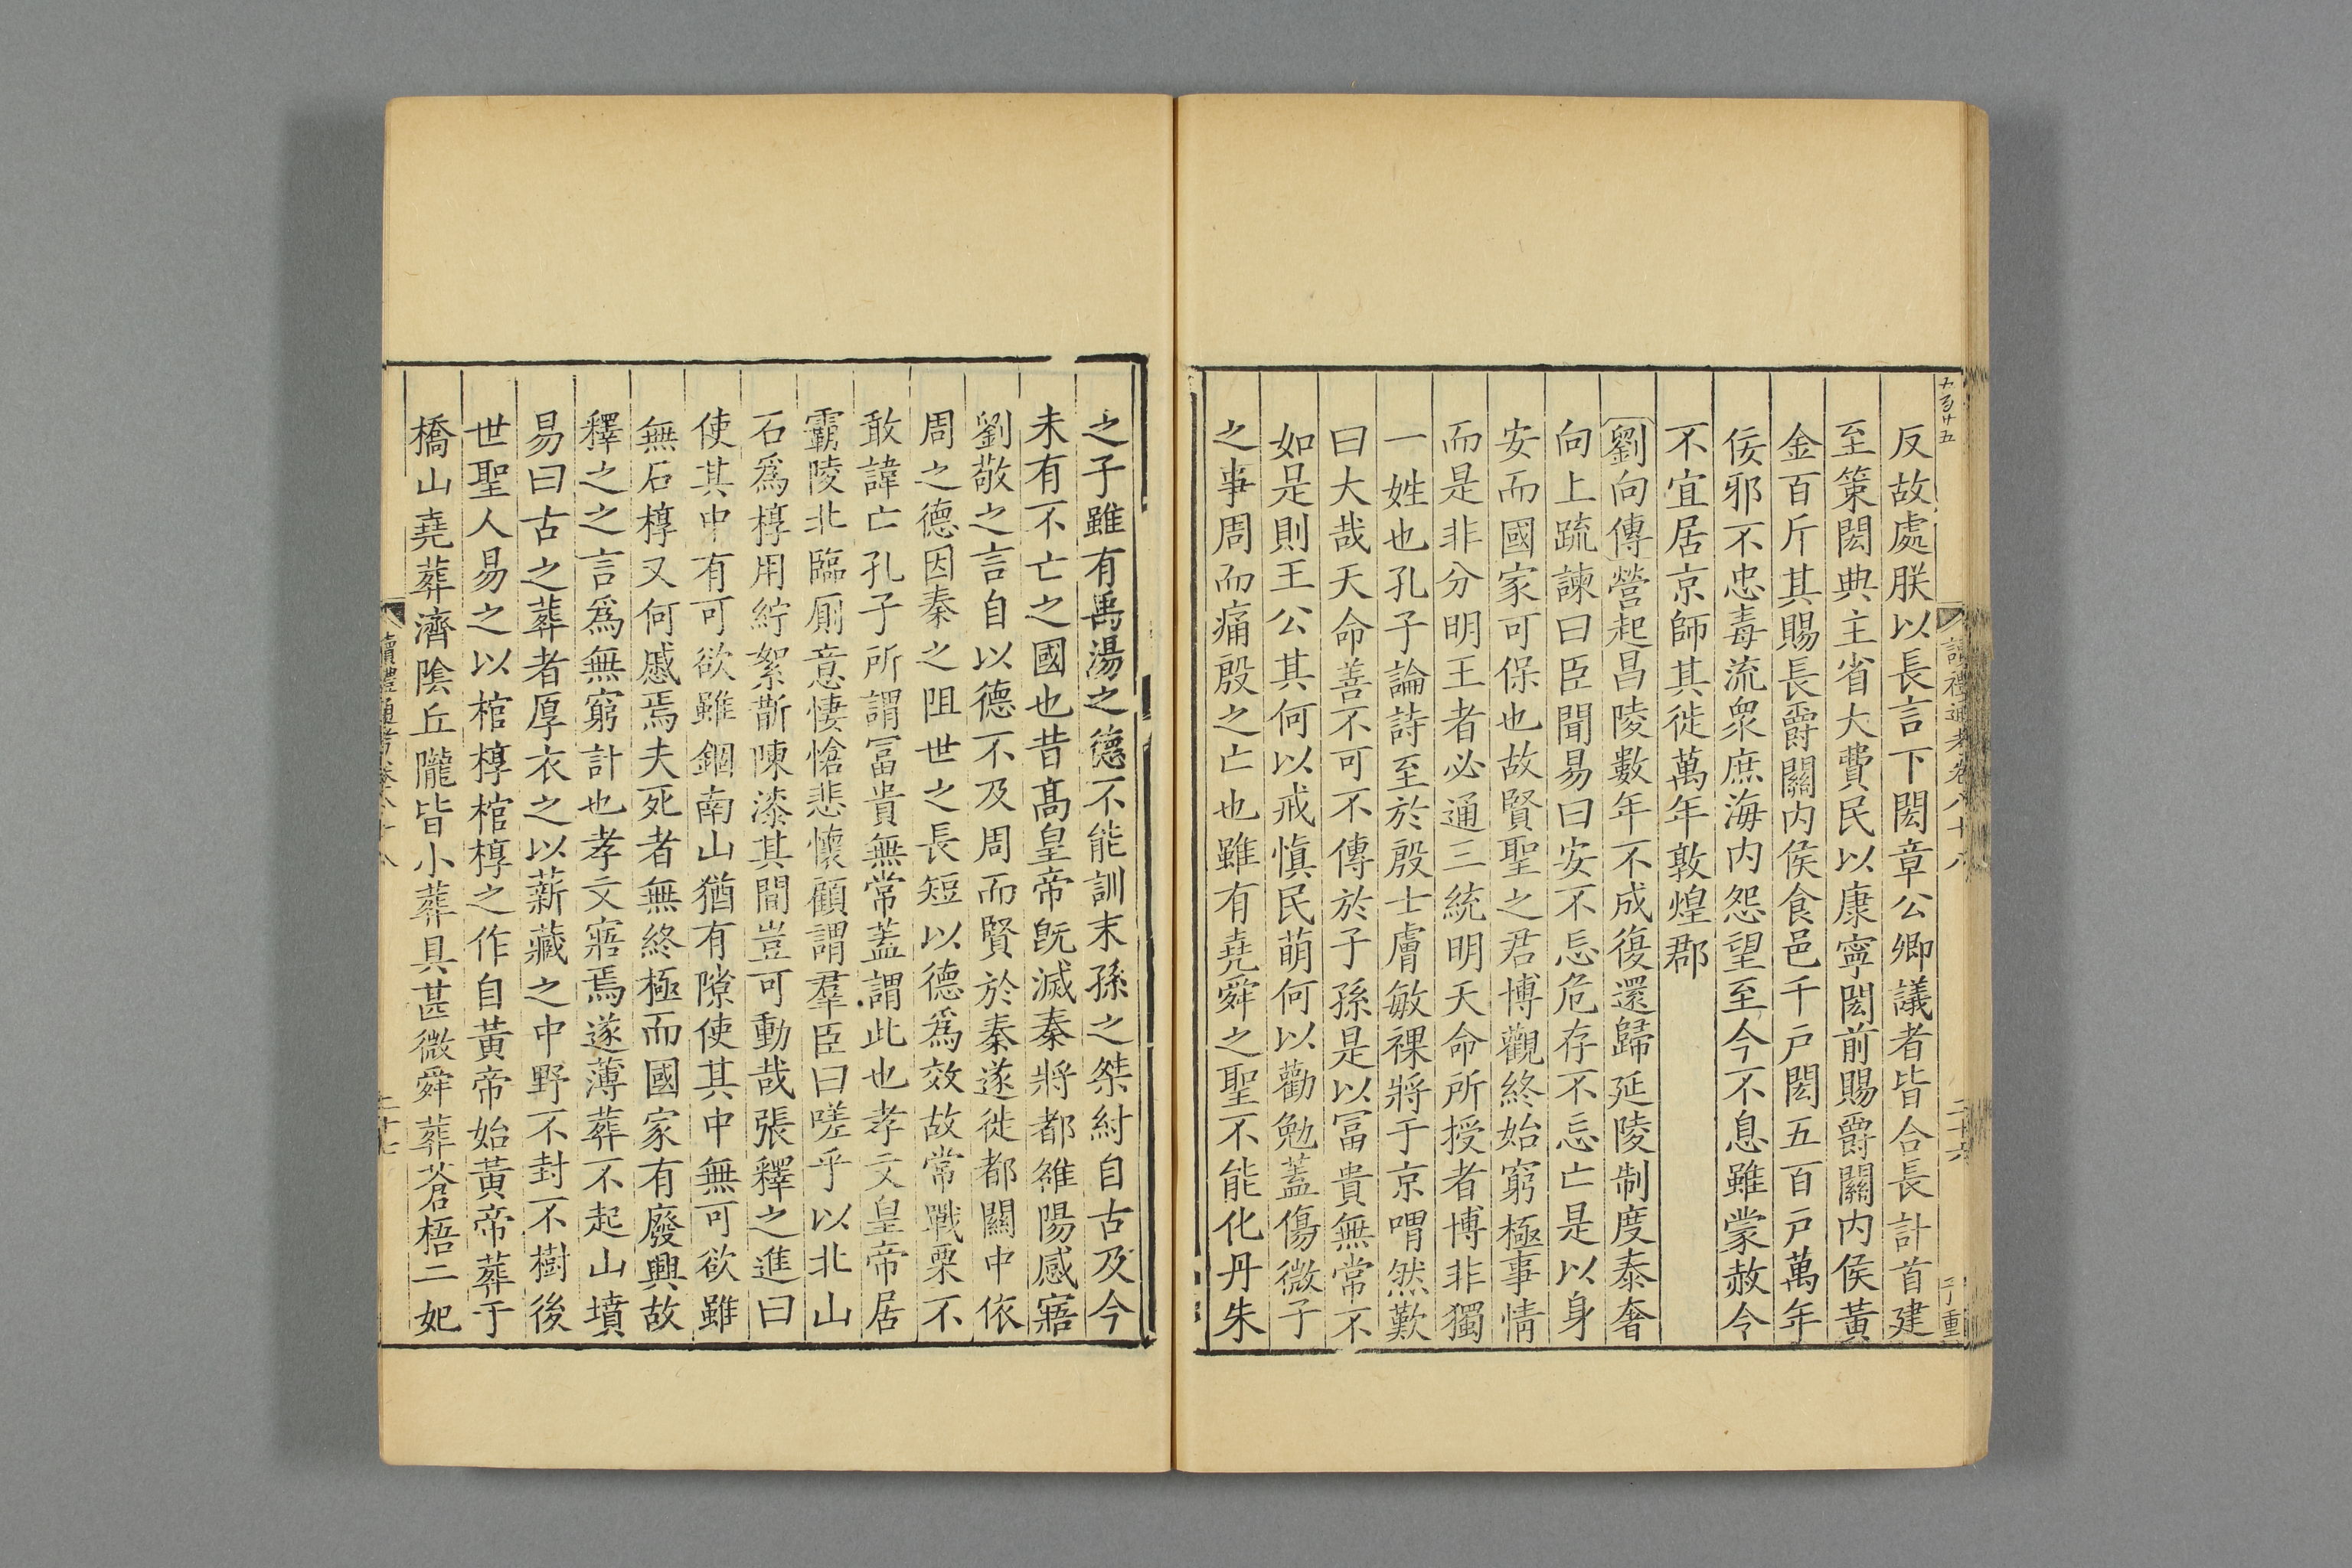 讀禮通考卷八十八
二十六
反故處朕以長言下閎章公卿議者皆合長計首建
至策閎典主省大費民以康寧閎前賜爵關內侯黃
金百斤其賜長爵關內侯食邑千戶閎五百戶萬年
佞邪不忠毒流衆庶海內怨望至今不息雖蒙赦令
不宜居京師其徙萬年敦煌郡
劉向傳營起昌陵數年不成復還歸延陵制度泰奢
向上疏諫曰臣聞易曰安不忘危存不忘亡是以身
安而國家可保也故賢聖之君博觀終始窮極事情
而是非分明王者必通三統明天命所授者博非獨
一姓也孔子論詩至於殷士膚敏祼將于京喟然歎
曰大哉天命善不可不傳於子孫是以富貴無常不
如是則王公其何以戒愼民萌何以勸勉蓋傷微子
之事周而痛殷之亡也雖有堯舜之聖不能化丹朱
之子雖有禹湯之德不能訓末孫之桀紂自古及今
未有不亡之國也昔高皇帝旣滅秦將都雒陽感寤
劉敬之言自以德不及周而賢於秦遂徙都關中依
周之德因秦之阻世之長短以德爲效故常戰栗不
敢諱亡孔子所謂富貴無常蓋謂此也孝文皇帝居
霸陵北臨厠意悽愴悲懷顧謂羣臣曰嗟乎以北山
石爲椁用紵絮斮陳漆其間豈可動哉張釋之進曰
使其中有可欲雖錮南山猶有隙使其中無可欲雖
無石椁又何慼焉夫死者無終極而國家有廢興故
釋之之言爲無窮計也孝文寤焉遂薄葬不起山墳
易曰古之葬者厚衣之以薪藏之中野不封不樹後
世聖人易之以棺椁棺椁之作自黃帝始黃帝葬于
橋山堯葬濟陰丘隴皆小葬具甚微舜葬蒼梧二妃
讀禮通考卷八十八
二十七